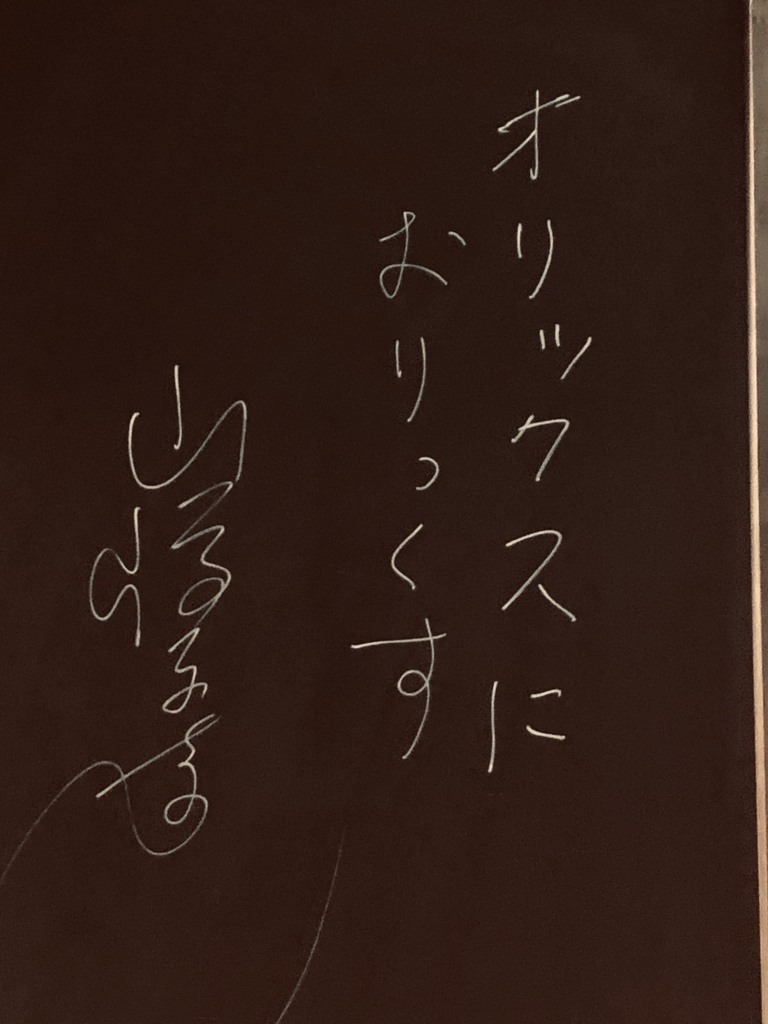 オリックスに
おりっくす